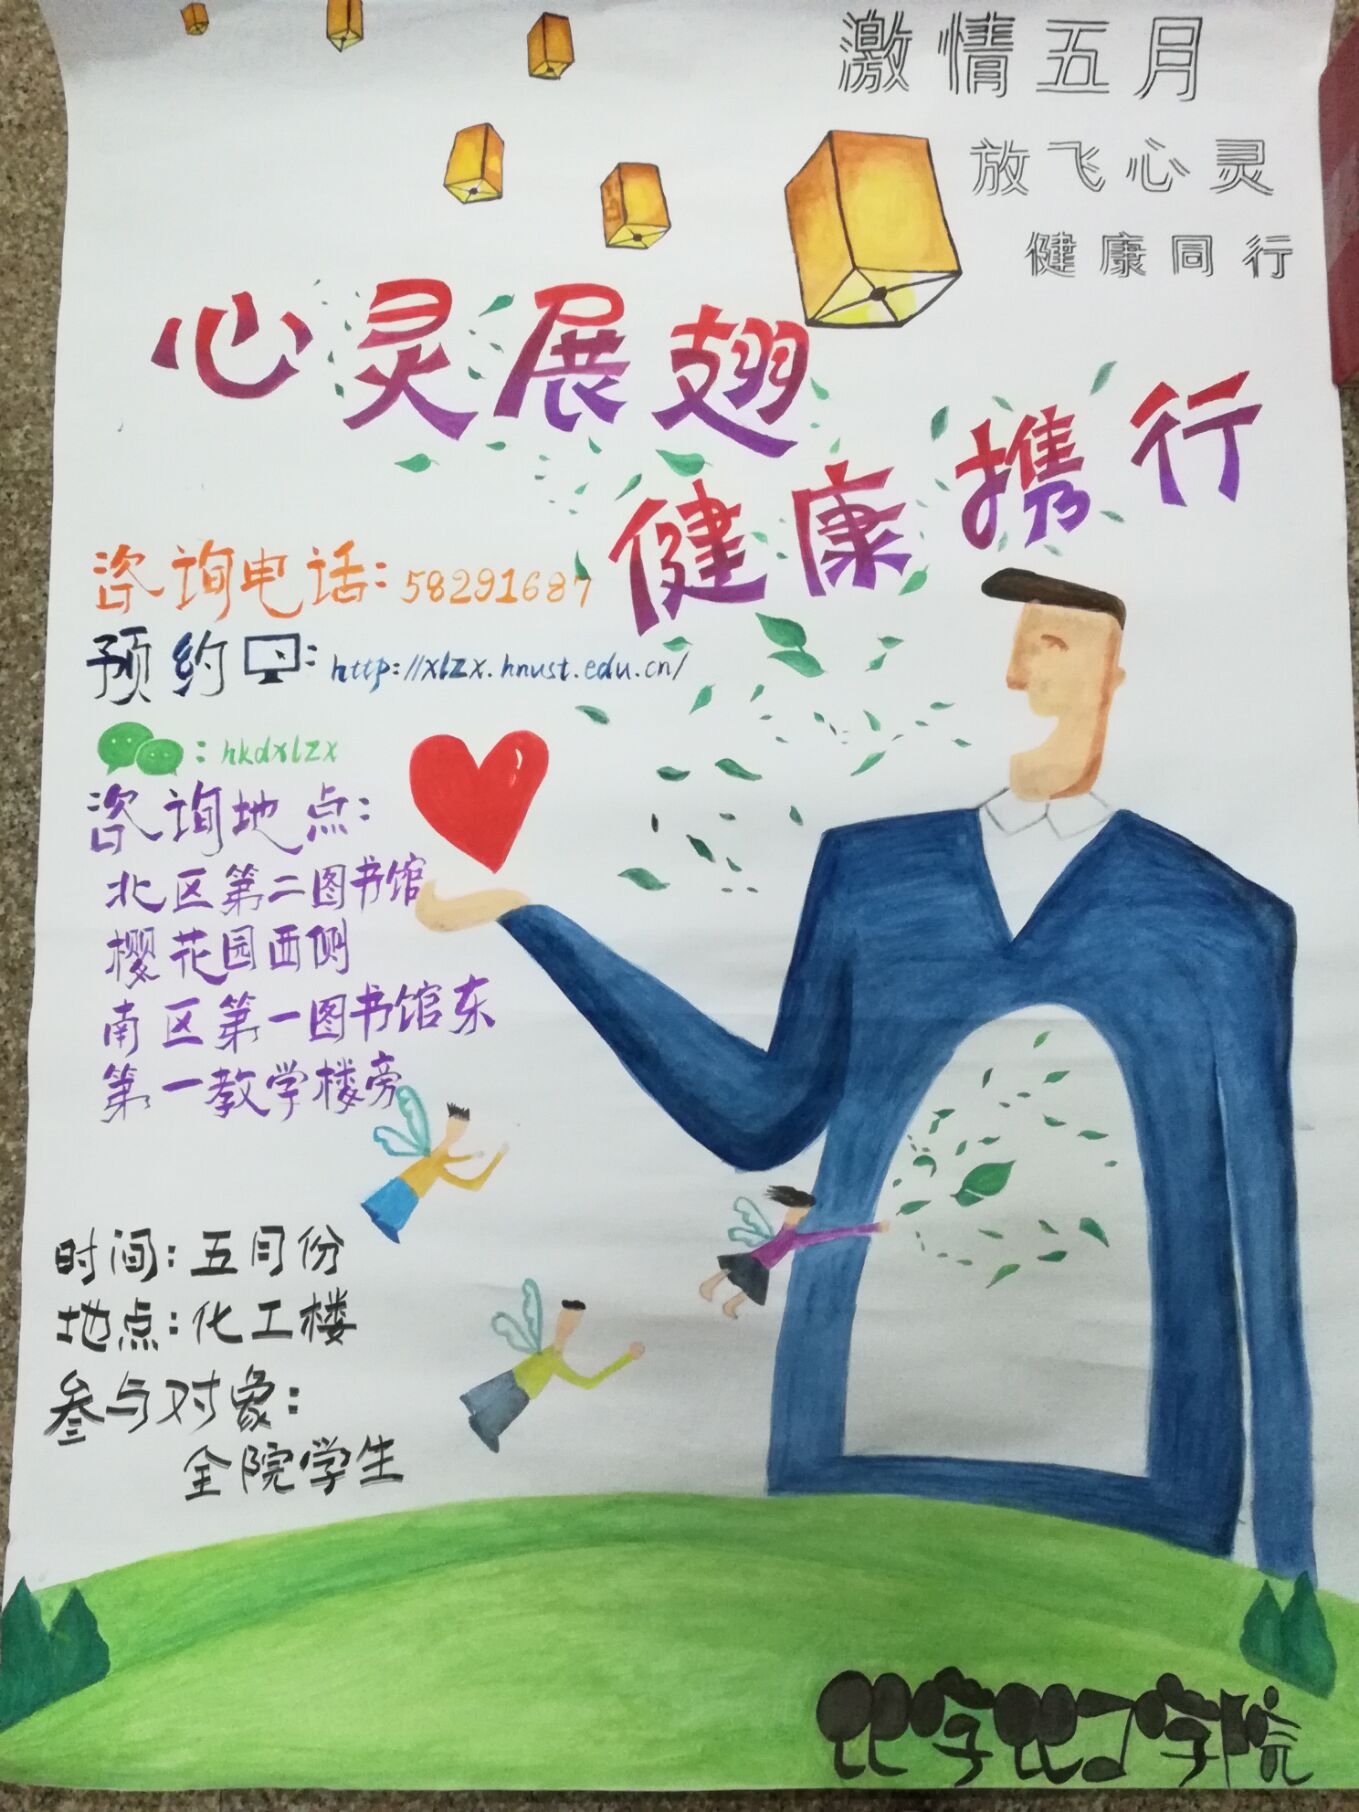 激情五月
放飞心灵
健康同行
心灵展翅
健康携行
咨询电话:58291687
预约:http://xlzx.hnust.edu.cn/
:hkdxlzx
咨询地点:
北区第二图书馆
樱花园西侧
南区第一图书馆东
第一教学楼旁
时间:五月份
地点:化工楼
参与对象:
全院学生
化学化工学院